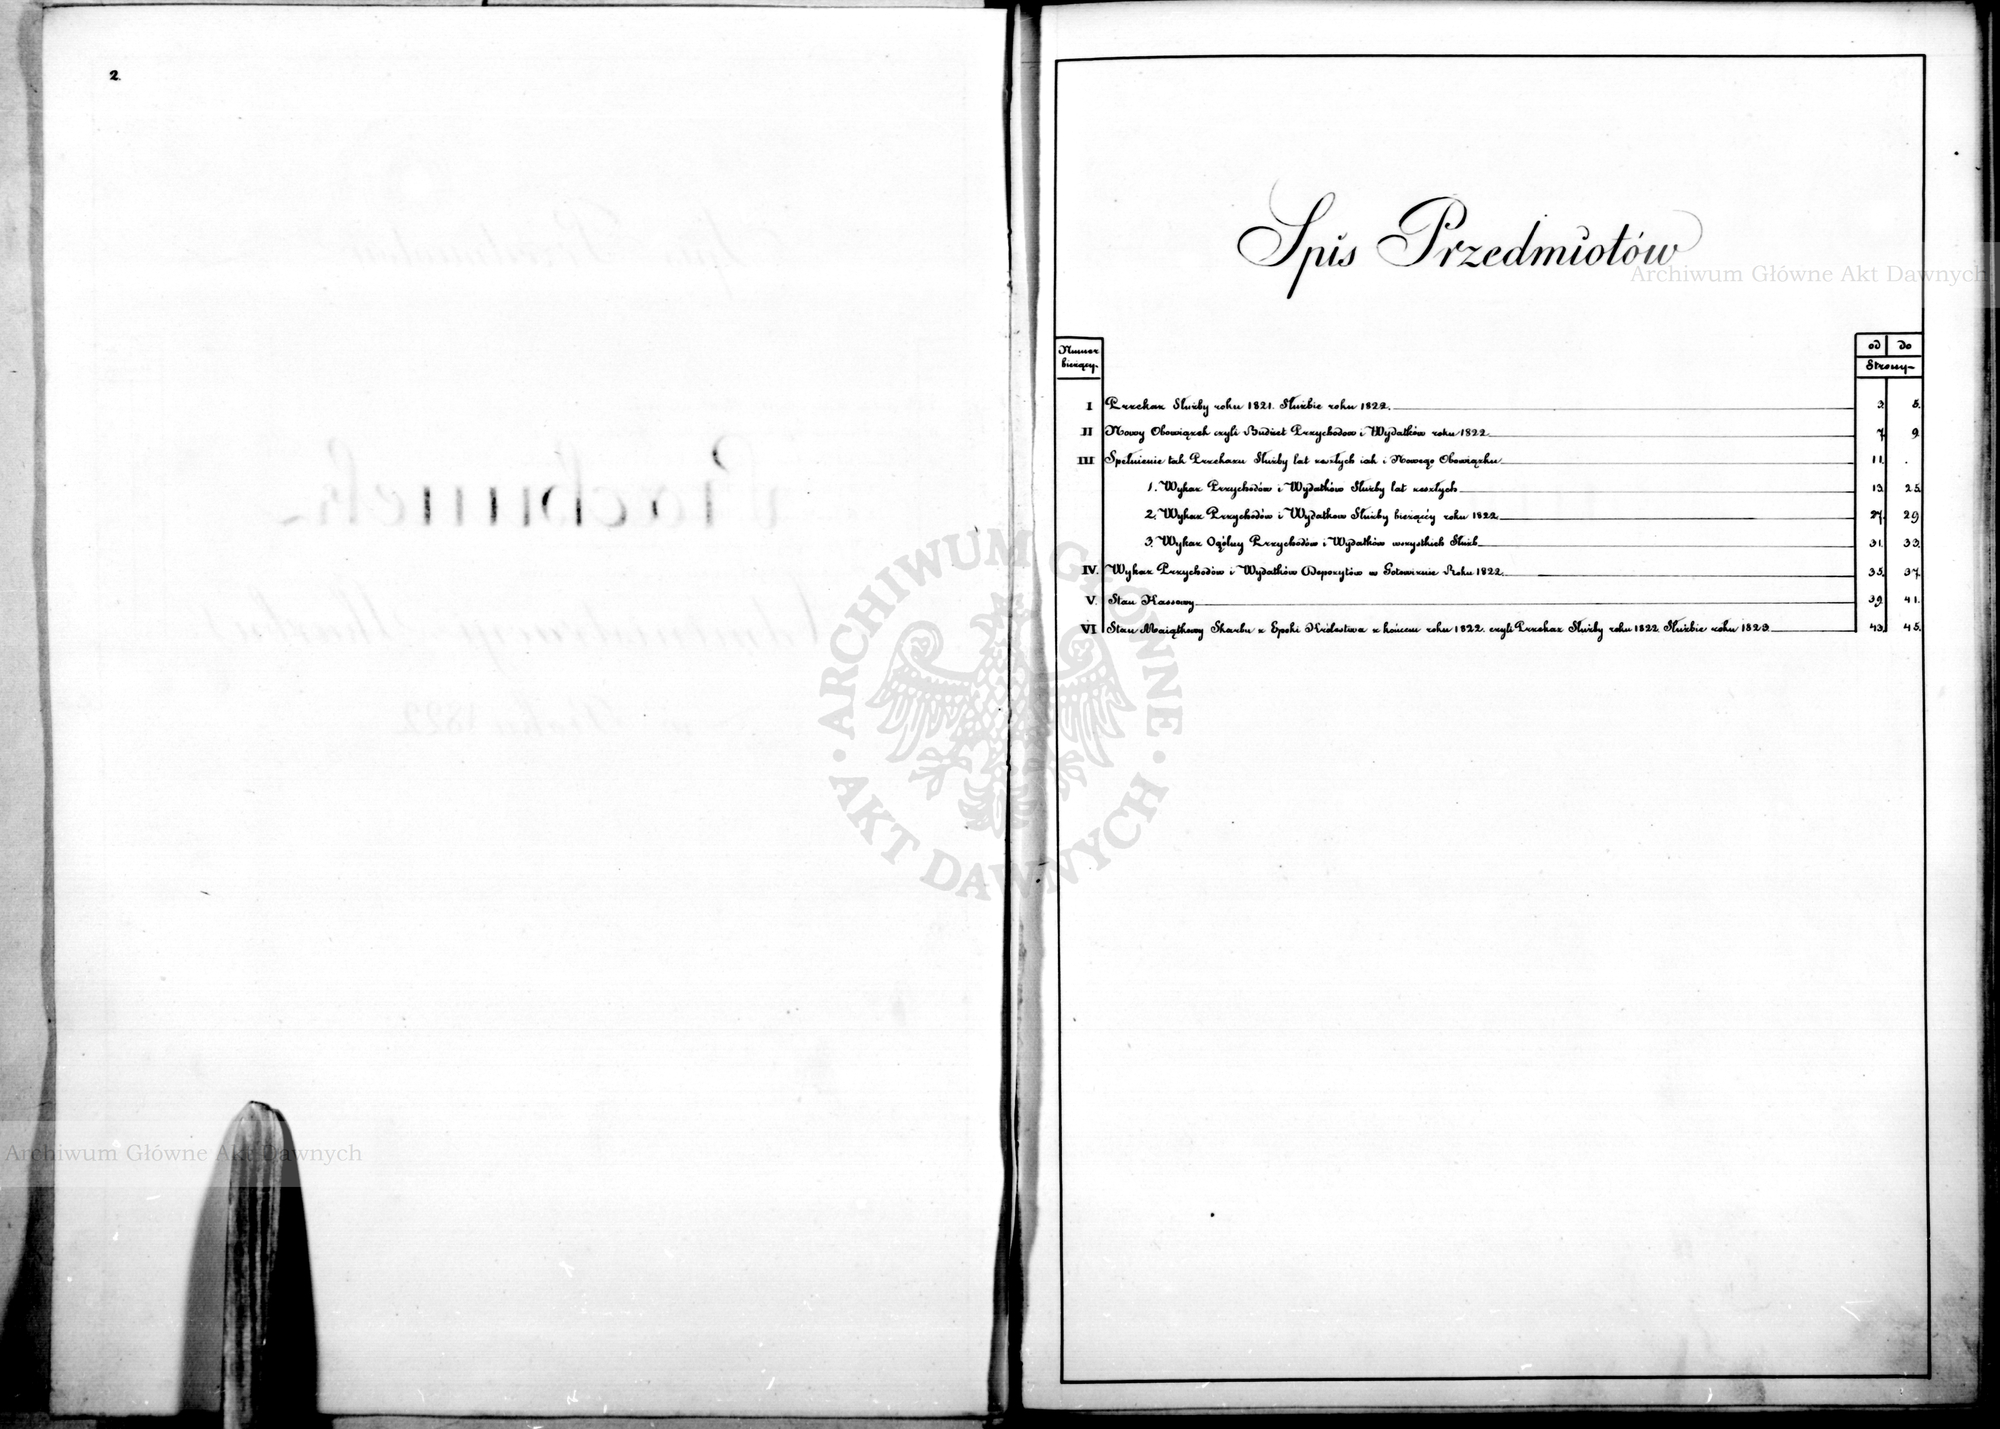 2.
Spis Przedmiotów
Archiwum Główne Akt Dawnych
Numer
bieżący.
od do
Strony
I Przekaz Służby roku 1821. Służbie roku 1822. 3. 5.
II Nowy Obowiązek czyli Budżet Przychodów i Wydatków roku 1822. 7. 9.
III Spełnienie tak Przekazu Służby lat zeszłych iak i Nowego Obowiązku 11. .
1. Wykaz Przychodów i Wydatków Służby lat zeszłych 13. 25.
2. Wykaz Przychodów i Wydatków Służby bieżącéy roku 1822. 27. 29.
3. Wykaz Ogólny Przychodów i Wydatków wszystkich Służb 31. 33.
IV. Wykaz Przychodów i Wydatków Depozytów w Gotowiznie Roku 1822. 35. 37.
V. Stan Kassowy 39. 41.
VI Stan Maiątkowy Skarbu z Epoki Królestwa z końcem roku 1822. czyli Przekaz Służby roku 1822. Służbie roku 1823. 43. 45.
ARCHIWUM GŁÓWNE · AKT DAWNYCH ·
Archiwum Główne Akt Dawnych